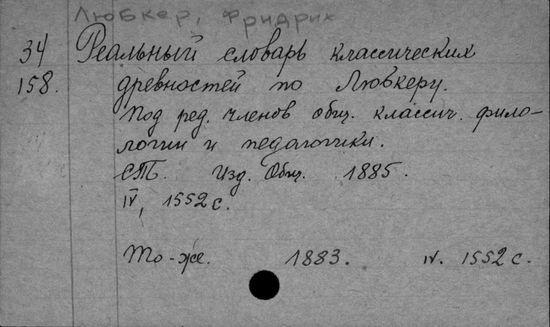 Любкер, Фридрих
34 Реальный словарь классических
158. древностей по Любкеру.
Под ред. членов общ. классич. фило-
логии и педагогики.
СПб. Изд. Общ. 1885.
IV, 1552 с.
То-же. 1883. IV. 1552 с.